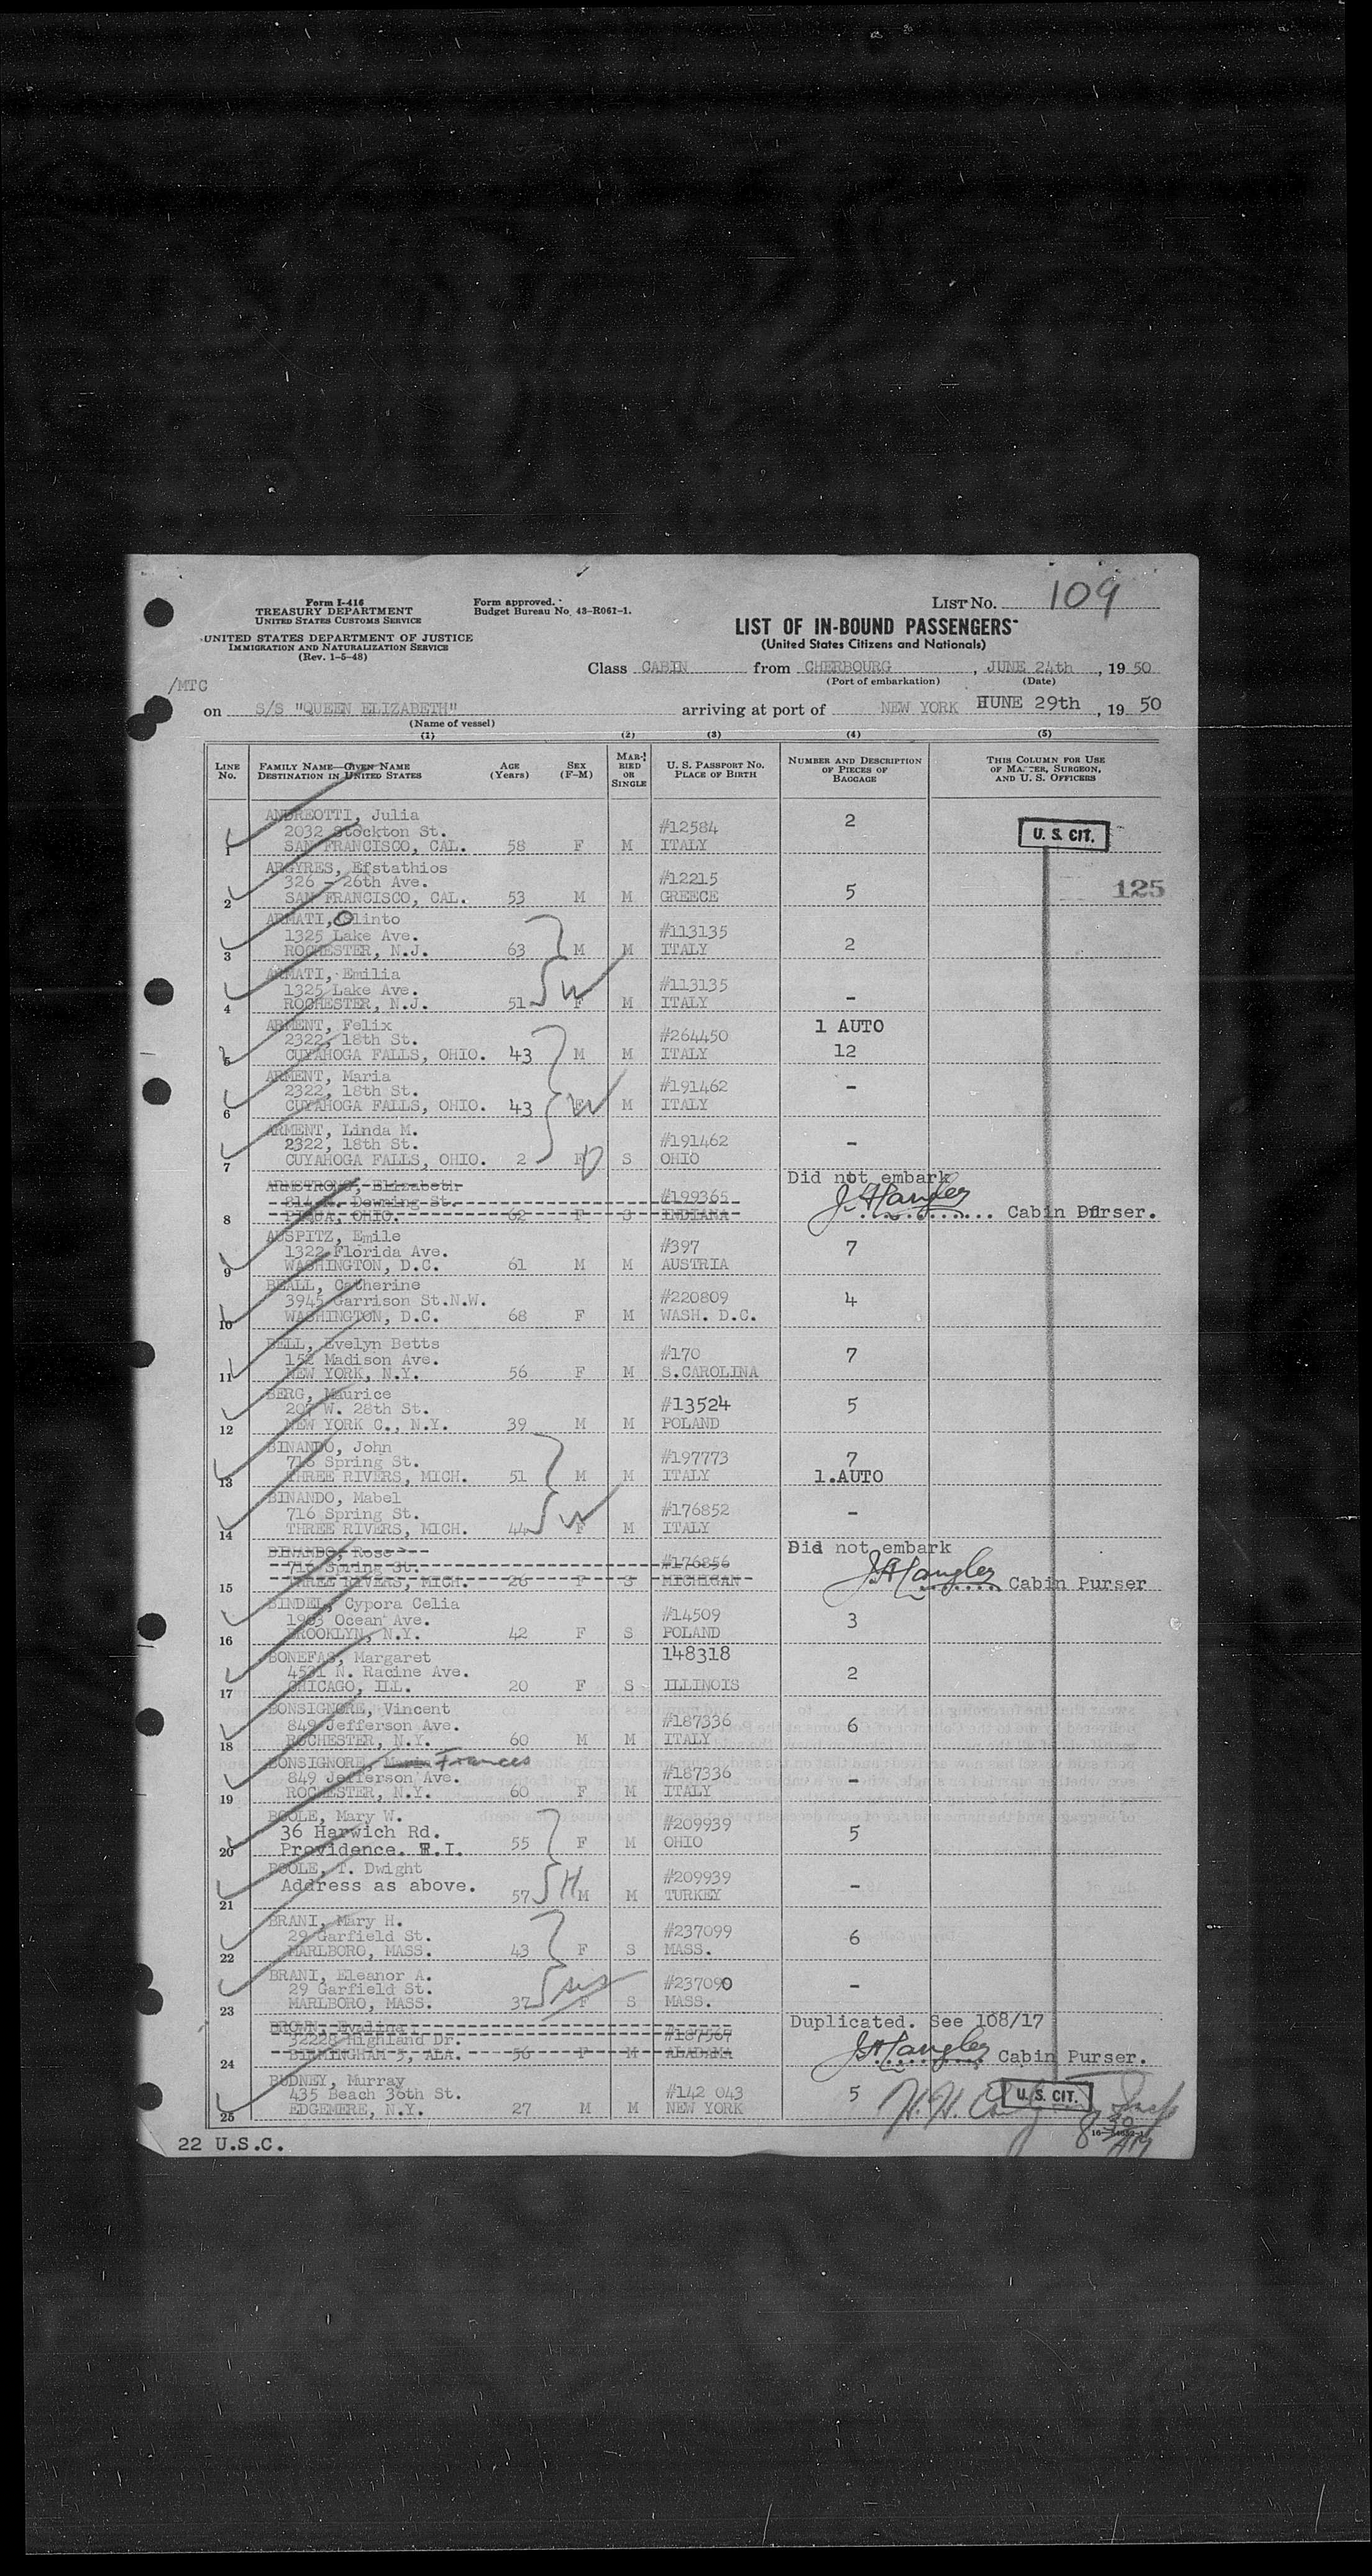 Form I-416
TREASURY DEPARTMENT
UNITED STATES CUSTOMS SERVICE
Form approved.
Budget Bureau No. 43-R061-1.
LIST NO. 109
UNITED STATES DEPARTMENT OF JUSTICE
IMMIGRATION AND NATURALIZATION SERVICE
(Rev. 1-5-48)
LIST OF IN-BOUND PASSENGERS
(United States Citizens and Nationals)
Class CABIN from CHERBOURG, JUNE 24th, 1950
(Port of embarkation) (Date)
/MTC
on S/S "QUEEN ELIZABETH" arriving at port of NEW YORK HUNE 29th, 1950
(Name of vessel)
(1) (2) (3) (4) (5)
LINE No. FAMILY NAME—GIVEN NAME DESTINATION IN UNITED STATES AGE (Years) SEX (F-M) MARRIED OR SINGLE U. S. PASSPORT NO. PLACE OF BIRTH NUMBER AND DESCRIPTION OF PIECES OF BAGGAGE THIS COLUMN FOR USE OF MASTER, SURGEON, AND U. S. OFFICERS
ANDREOTTI, Julia
2032 Stockton St. #12584 2 U. S. CIT.
1 SAN FRANCISCO, CAL. 58 F M ITALY
ARGYRES, Efstathios
326 - 26th Ave. #12215 5 125
2 SAN FRANCISCO, CAL. 53 M M GREECE
ARMATI, Olinto
1325 Lake Ave. #113135 2
3 ROCHESTER, N.J. 63 M M ITALY
ARMATI, Emilia
1325 Lake Ave. #113135 -
4 ROCHESTER, N.J. 51 W F M ITALY
ARMENT, Felix 1 AUTO
2322, 18th St. #264450
5 CUYAHOGA FALLS, OHIO. 43 M M ITALY 12
ARMENT, Maria
2322, 18th St. #191462 -
6 CUYAHOGA FALLS, OHIO. 43 F W M ITALY
ARMENT, Linda M.
2322, 18th St. #191462 -
7 CUYAHOGA FALLS, OHIO. 2 F D S OHIO
ARMSTRONG, Elizabeth Did not embark
814 N. Downing St. #199365 J. A Langley
8 PIQUA, OHIO. 62 F S INDIANA Cabin Purser.
AUSPITZ, Emile
1322 Florida Ave. #397 7
9 WASHINGTON, D.C. 61 M M AUSTRIA
BEALL, Catherine
3945 Garrison St.N.W. #220809 4
10 WASHINGTON, D.C. 68 F M WASH. D.C.
BELL, Evelyn Betts
152 Madison Ave. #170 7
11 NEW YORK, N.Y. 56 F M S.CAROLINA
BERG, Maurice
207 W. 28th St. #13524 5
12 NEW YORK C., N.Y. 39 M M POLAND
BINANDO, John
716 Spring St. #197773 7
13 THREE RIVERS, MICH. 51 M M ITALY 1.AUTO
BINANDO, Mabel
716 Spring St. #176852 -
14 THREE RIVERS, MICH. 44 W F M ITALY
BINANDO, Rose Did not embark
716 Spring St. #176856 J. A Langley
15 THREE RIVERS, MICH. 26 F S MICHIGAN Cabin Purser
BINDEL, Cypora Celia
1963 Ocean Ave. #14509 3
16 BROOKLYN, N.Y. 42 F S POLAND
BONEFAS, Margaret 148318
4531 N. Racine Ave. 2
17 CHICAGO, ILL. 20 F S ILLINOIS
BONSIGNORE, Vincent
849 Jefferson Ave. #187336 6
18 ROCHESTER, N.Y. 60 M M ITALY
BONSIGNORE, Maria Frances
849 Jefferson Ave. #187336 -
19 ROCHESTER, N.Y. 60 F M ITALY
BOOLE, Mary W.
36 Harwich Rd. #209939 5
20 Providence. R.I. 55 F M OHIO
BOOLE, T. Dwight
Address as above. #209939 -
21 57 H M M TURKEY
BRANI, Mary H.
29 Garfield St. #237099 6
22 MARLBORO, MASS. 43 F S MASS.
BRANI, Eleanor A.
29 Garfield St. #237090 -
23 MARLBORO, MASS. 37 sis F S MASS.
BROWN, Evalina Duplicated. See 108/17
3222B Highland Dr. #187567 J. A Langley
24 BIRMINGHAM 5, ALA. 56 F M ALABAMA Cabin Purser.
BUDNEY, Murray
435 Beach 36th St. #142 043 5 U. S. CIT.
25 EDGEMERE, N.Y. 27 M M NEW YORK
22 U.S.C.